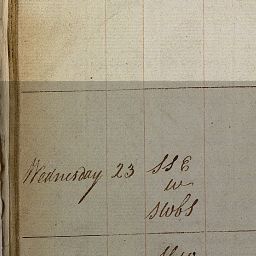 Wednesday 23 SSE
W
SWbS